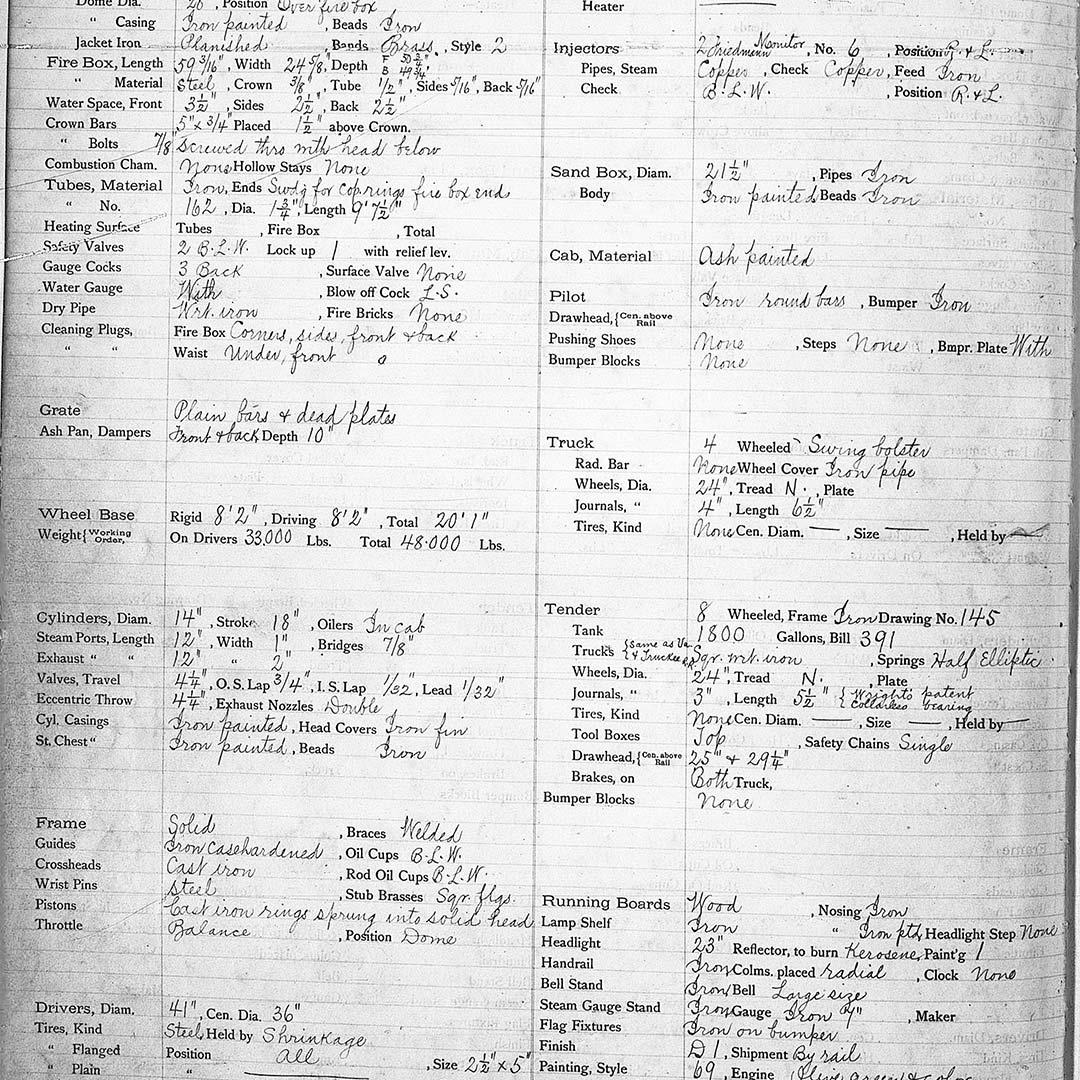 Dome Dia. 26", Position Over fire box
" Casing Iron painted, Beads Iron
Jacket Iron Planished, Bands Brass, Style 2
Fire Box, Length 59 3/16", Width 24 5/8", Depth F 50 3/4" B 49 3/4"
" Material Steel, Crown 3/8", Tube 1/2", Sides 5/16", Back 5/16"
Water Space, Front 3 1/2", Sides 2 1/2", Back 2 1/2"
Crown Bars 5" x 3/4" Placed 1 1/2" above Crown.
" Bolts 7/8" Screwed thro with head below
Combustion Cham. None Hollow Stays None
Tubes, Material Iron, Ends Swdg for cop rings fire box end
" No. 162, Dia. 1 3/4", Length 9' 7 1/2"
Heating Surface Tubes , Fire Box , Total
Safety Valves 2 B.L.W. Lock up 1 with relief lev.
Gauge Cocks 3 Back , Surface Valve None
Water Gauge With , Blow off Cock L.S.
Dry Pipe Wrt. iron , Fire Bricks None
Cleaning Plugs, Fire Box Corners, sides, front & back
" " Waist Under, front
Grate Plain bars & dead plates
Ash Pan, Dampers Front & back Depth 10"
Wheel Base Rigid 8' 2", Driving 8' 2", Total 20' 1"
Weight { Working Order, On Drivers 33.000 Lbs. Total 48.000 Lbs.
Cylinders, Diam. 14", Stroke 18", Oilers In cab
Steam Ports, Length 12", Width 1", Bridges 7/8"
Exhaust " " 12" " 2"
Valves, Travel 4 1/4", O. S. Lap 3/4", I. S. Lap 1/32", Lead 1/32"
Eccentric Throw 4 1/4", Exhaust Nozzles Double
Cyl. Casings Iron painted, Head Covers Iron fin
St. Chest " Iron painted, Beads Iron
Frame Solid , Braces Welded
Guides Iron Casehardened , Oil Cups B.L.W.
Crossheads Cast iron , Rod Oil Cups B.L.W.
Wrist Pins Steel , Stub Brasses Sqr. flgs.
Pistons Cast iron rings sprung into solid head
Throttle Balance , Position Dome
Drivers, Diam. 41", Cen. Dia. 36"
Tires, Kind Steel, Held by Shrinkage
" Flanged Position All , Size 2 1/2" x 5"
" Plain "
Heater
Injectors 2 Friedmann Monitor, No. 6 , Position R. & L.
Pipes, Steam Copper, Check Copper, Feed Iron
Check B.L.W. , Position R. & L.
Sand Box, Diam. 21 1/2" , Pipes Iron
Body Iron painted Beads Iron
Cab, Material Ash painted
Pilot Iron round bars , Bumper Iron
Drawhead, { Cen. above Rail
Pushing Shoes None , Steps None , Bmpr. Plate With
Bumper Blocks None
Truck 4 Wheeled Swing bolster
Rad. Bar None Wheel Cover Iron pipe
Wheels, Dia. 24", Tread N. , Plate
Journals, " 4", Length 6 1/2"
Tires, Kind None Cen. Diam. — , Size — , Held by —
Tender 8 Wheeled, Frame Iron Drawing No. 145
Tank 1800 Gallons, Bill 391
Trucks { Same as Va. & Truckee Sqr. wrt. iron , Springs Half Elliptic
Wheels, Dia. 24", Tread N. , Plate
Journals, " 3", Length 5 1/2" { Wright's patent Collarless bearing
Tires, Kind None Cen. Diam. — , Size — , Held by —
Tool Boxes Top , Safety Chains Single
Drawhead, { Cen. above Rail 25" & 29 1/4"
Brakes, on Both Truck,
Bumper Blocks None
Running Boards Wood , Nosing Iron
Lamp Shelf Iron " Iron ptd, Headlight Step None
Headlight 23" Reflector, to burn Kerosene, Paint'g 1
Handrail Iron Colms. placed radial , Clock None
Bell Stand Iron, Bell Large size
Steam Gauge Stand Iron Gauge Iron , Maker
Flag Fixtures Iron on bumper
Finish D 1, Shipment By rail
Painting, Style 69, Engine Olive green & color